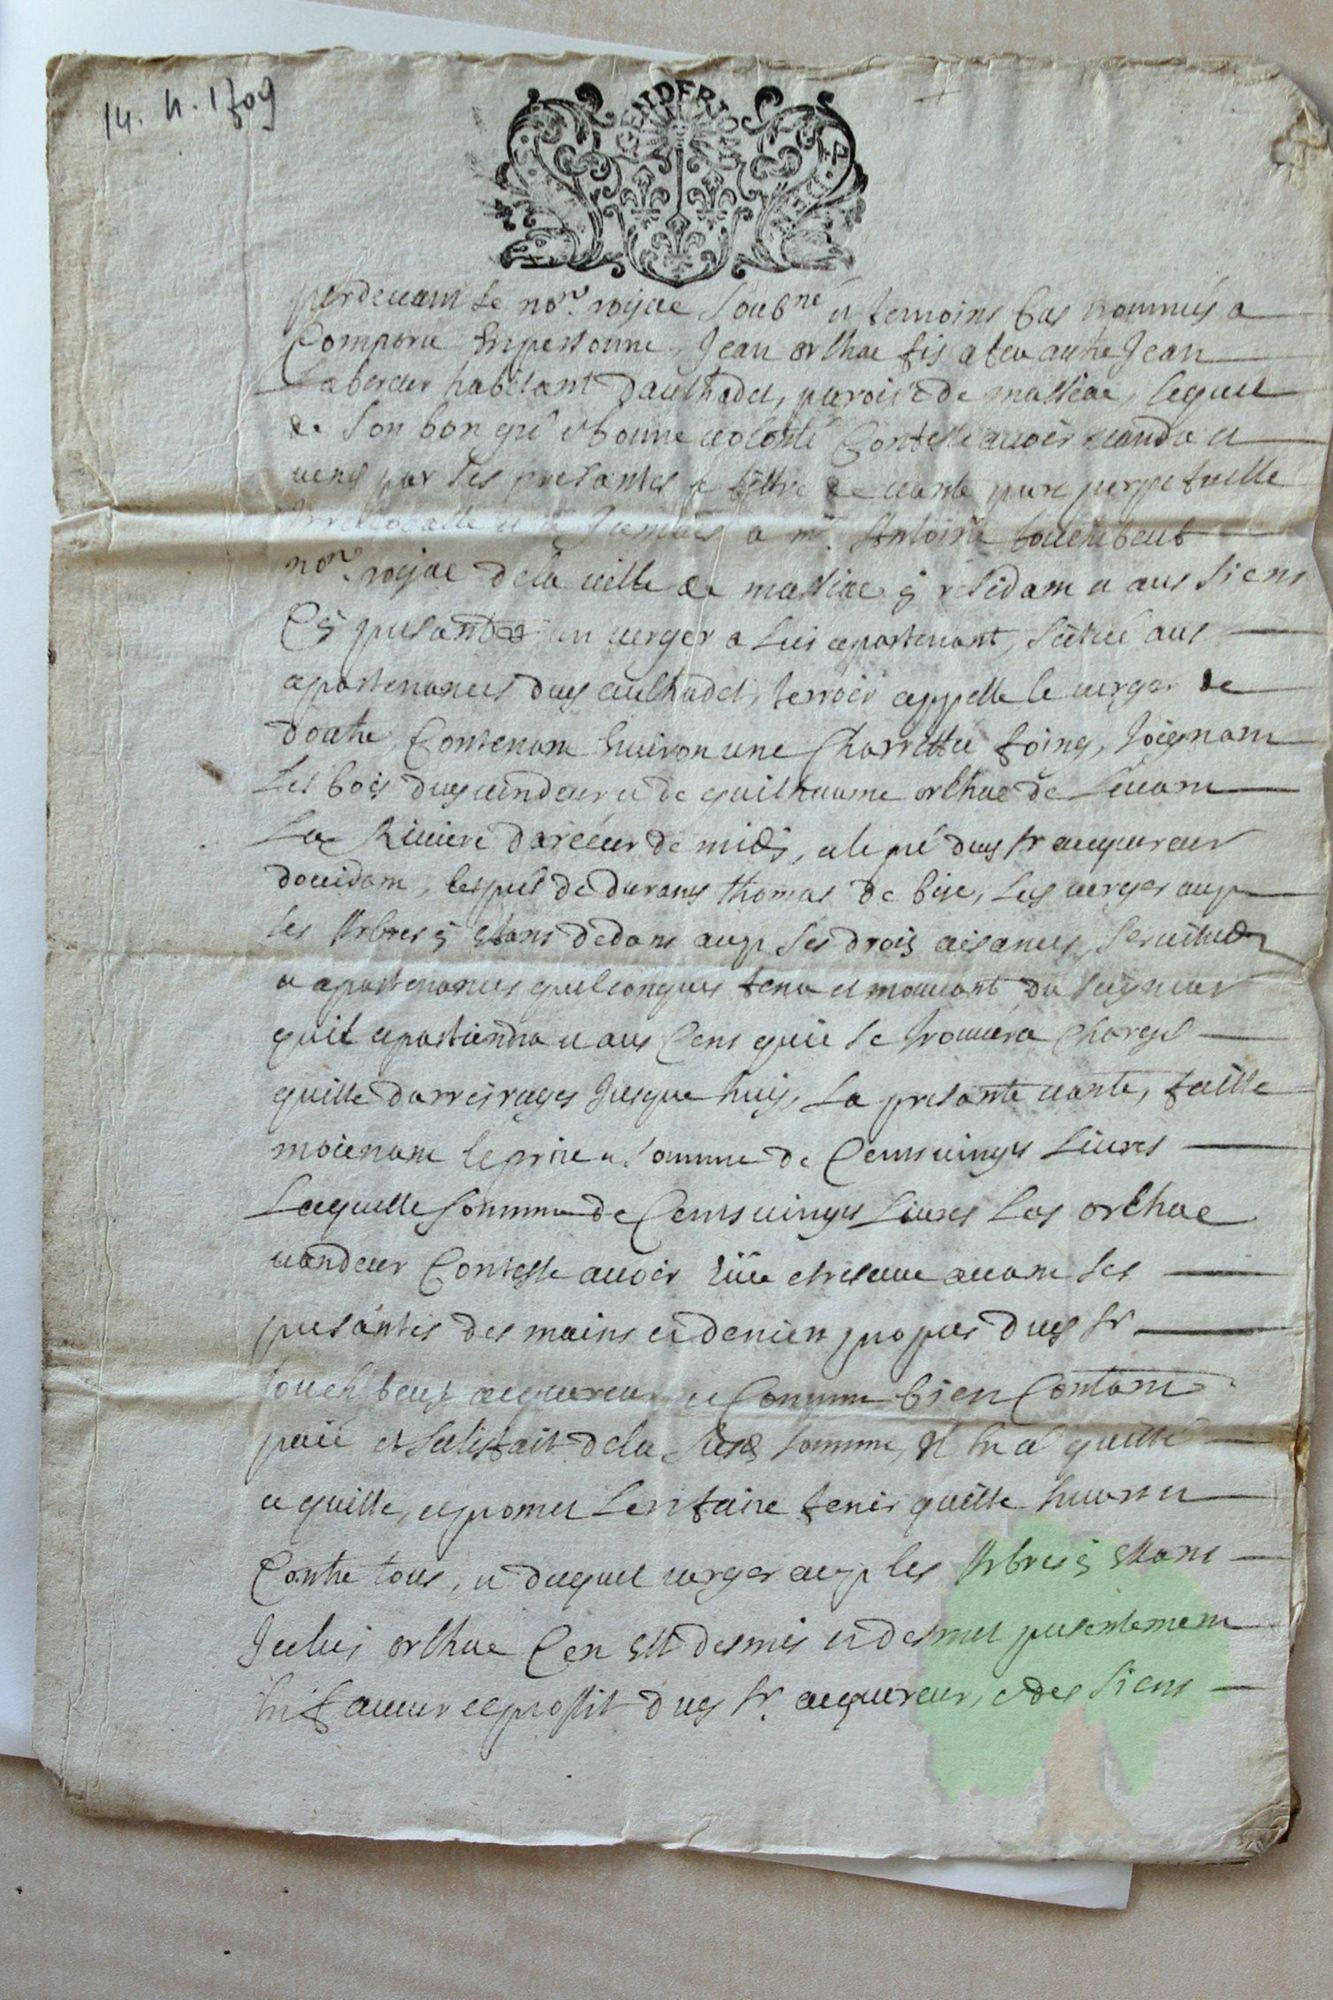 14. 4. 1709
GEN DE RIOM
pardevant le nore. royal soubné et temoins bas nommés a
Comparu en personne, Jean orlhac fis a feu autre Jean
Laboreur habitant daulhadet, paroisse de massiac, lequel
de son bon gré et bonne volonté Confesse avoir vandu et
vend par ses presantes a tiltre de vante pure perpetuelle
Irrevocable et a Jamais a mr. Antoine touchebeuf
nore. royal de la ville de massiac y residam et aus siens
Cy presant un verger a luis apartenant, scitué aus
apartenances dud aulhadet, terroir appellé le verger de
Contenam environ une Charrettée foing, Joignam
Les bois dud vendeur et de guilhaume orlhac de Levam
La Riviere de midi, et le pré dud sr acqureur
de durand thomas de bise, Led verger avec
les Arbres y estans dedans avec ses drois aisances, servitudes
et apartenances quelconques tenu et mouvant du seigneur
quil apartiendra et aus Cens quil se trouvera Chargé
quitte darreirages Jusque huy, La presante vante, faitte
moienam le prix et somme de Cens vingt Livres
Laquelle somme de Cens vingt Livres Led orlhac
vandeur Confesse avoir et reseue avam ses
presantes des mains et deniers propres dud sr
touchebeuf acqureur et Comme bien Contam
paié et satisfait de la susd somme, Il en a quitté
et quitte, et promet Len faire tenir quitte envers et
Contre tous, et duquel verger avec les Arbres y estans
Jcelui orlhac Cen est desmis et desmet presentement
en faveur et proffit dud sr. acqureur, et des siens